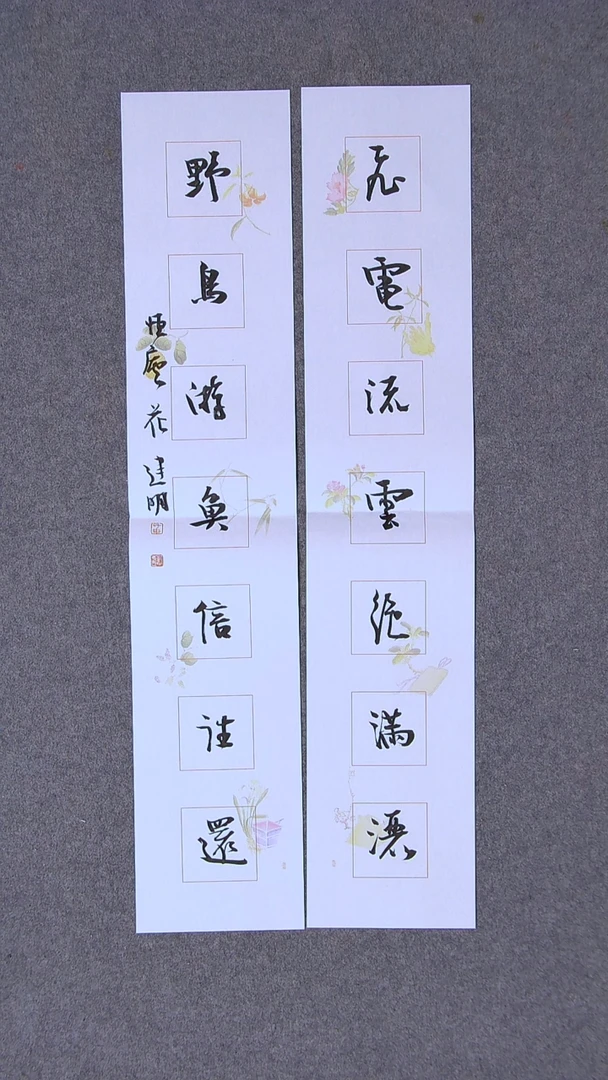 飛電流雲絕瀟灑
野鳥游魚信往還
花建明